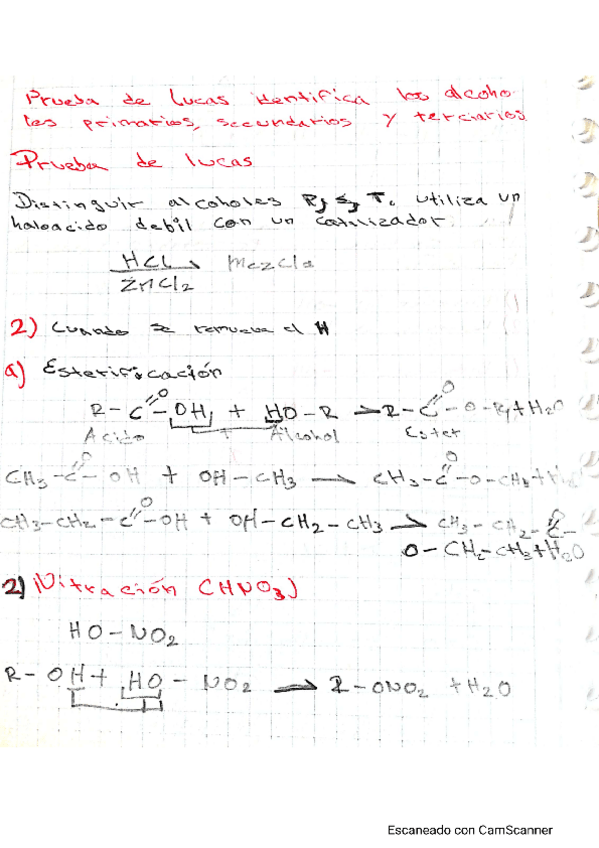 Prueba de Lucas identifica los alcoho
les primarios, secundarios y terciarios
Prueba de lucas
Distinguir alcoholes P, S, T. utiliza un
haloacido debil con un catilizador.
HCL → Mezcla
ZnCl2
2) Cuando se remueva el H
a) Esterificación
O O
R-C-OH + HO-R → R-C-O-R + H2O
Acido + Alcohol Ester
O O
CH3-C-OH + OH-CH3 → CH3-C-O-CH3 + H2O
O
CH3-CH2-C-OH + OH-CH2-CH3 → CH3-CH2-C-
O-CH2-CH3+H2O
2) Nitración (HNO3)
HO-NO2
R-OH + HO-NO2 → R-ONO2 + H2O
Escaneado con CamScanner